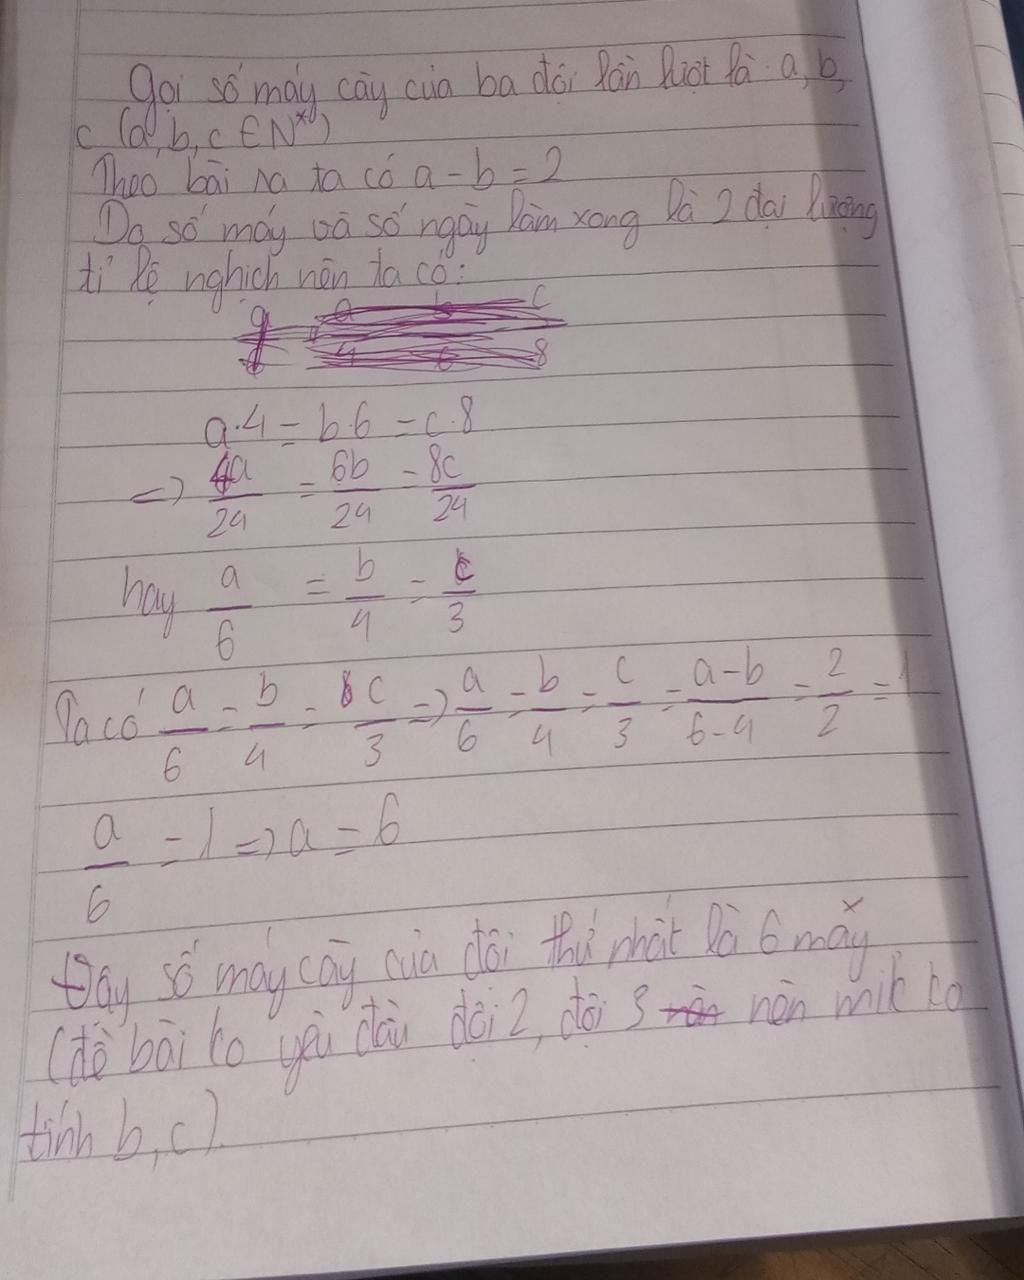 Gọi số máy cày của ba đội lần lượt là a, b,
c (a, b, c ∈ N*)
Theo bài ra ta có a - b = 2
Do số máy và số ngày làm xong là 2 đại lượng
tỉ lệ nghịch nên ta có:
a.4 = b.6 = c.8
=> 4a/24 = 6b/24 = 8c/24
hay a/6 = b/4 = c/3
Ta có a/6 = b/4 = c/3 => a/6 = b/4 = c/3 = a-b/6-4 = 2/2 = 1
a/6 = 1 => a = 6
Vậy số máy cày của đội thứ nhất là 6 máy
(đề bài ko yêu đầu đội 2, đội 3 nên mik ko
tính b, c).